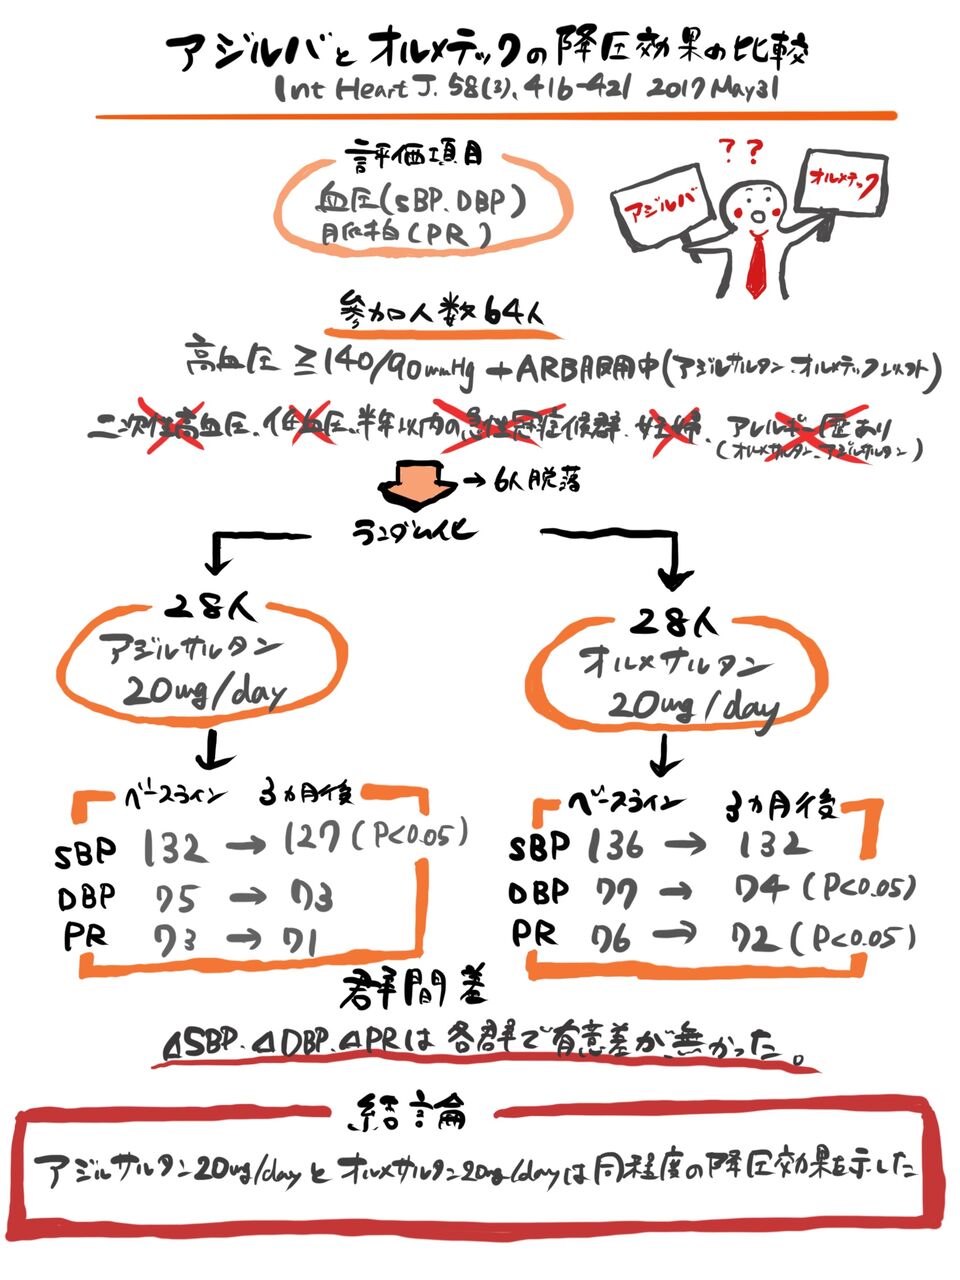 アジルバとオルメテックの降圧効果の比較
Int Heart J. 58(3), 416-421 2017 May31
評価項目
血圧(SBP、DBP)
脈拍(PR)
??
アジルバ
オルメテック
参加人数64人
高血圧 ≧140/90mmHg +ARB服用中(アジルサルタン、オルメテック以外)
二次性高血圧、低血圧、半年以内の急性冠症候群、妊婦、アレルギー歴あり
(オルメサルタン、アジルサルタン)
→6人脱落
ランダム化
28人
アジルサルタン
20mg/day
28人
オルメサルタン
20mg/day
ベースライン 3ヵ月後
SBP 132 → 127(P<0.05)
DBP 75 → 73
PR 73 → 71
ベースライン 3ヵ月後
SBP 136 → 132
DBP 77 → 74(P<0.05)
PR 76 → 72(P<0.05)
群間差
ΔSBP、ΔDBP、ΔPRは各群で有意差が無かった。
結論
アジルサルタン20mg/dayとオルメサルタン20mg/dayは同程度の降圧効果を示した